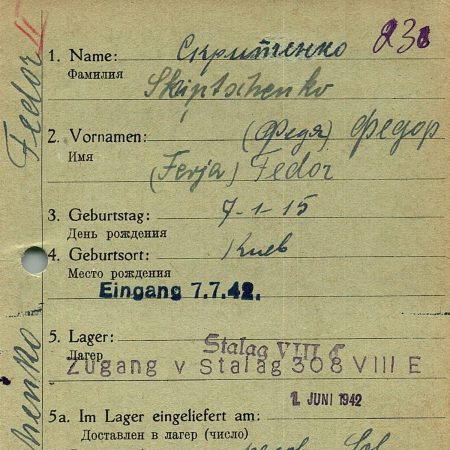 1. Name: Скритенко 238
Фамилия
Skiptschenko
2. Vornamen: (Федя) Федор
Имя
(Ferja) Fedor
3. Geburtstag: 7-1-15
День рождения
4. Geburtsort: Киев
Место рождения
Eingang 7.7.42.
5. Lager: Stalag VIII
Лагер
Zugang v Stalag 308 VIII E
1. JUNI 1942
5a. Im Lager eingeliefert am:
Доставлен в лагер (число)
Fedor
henko